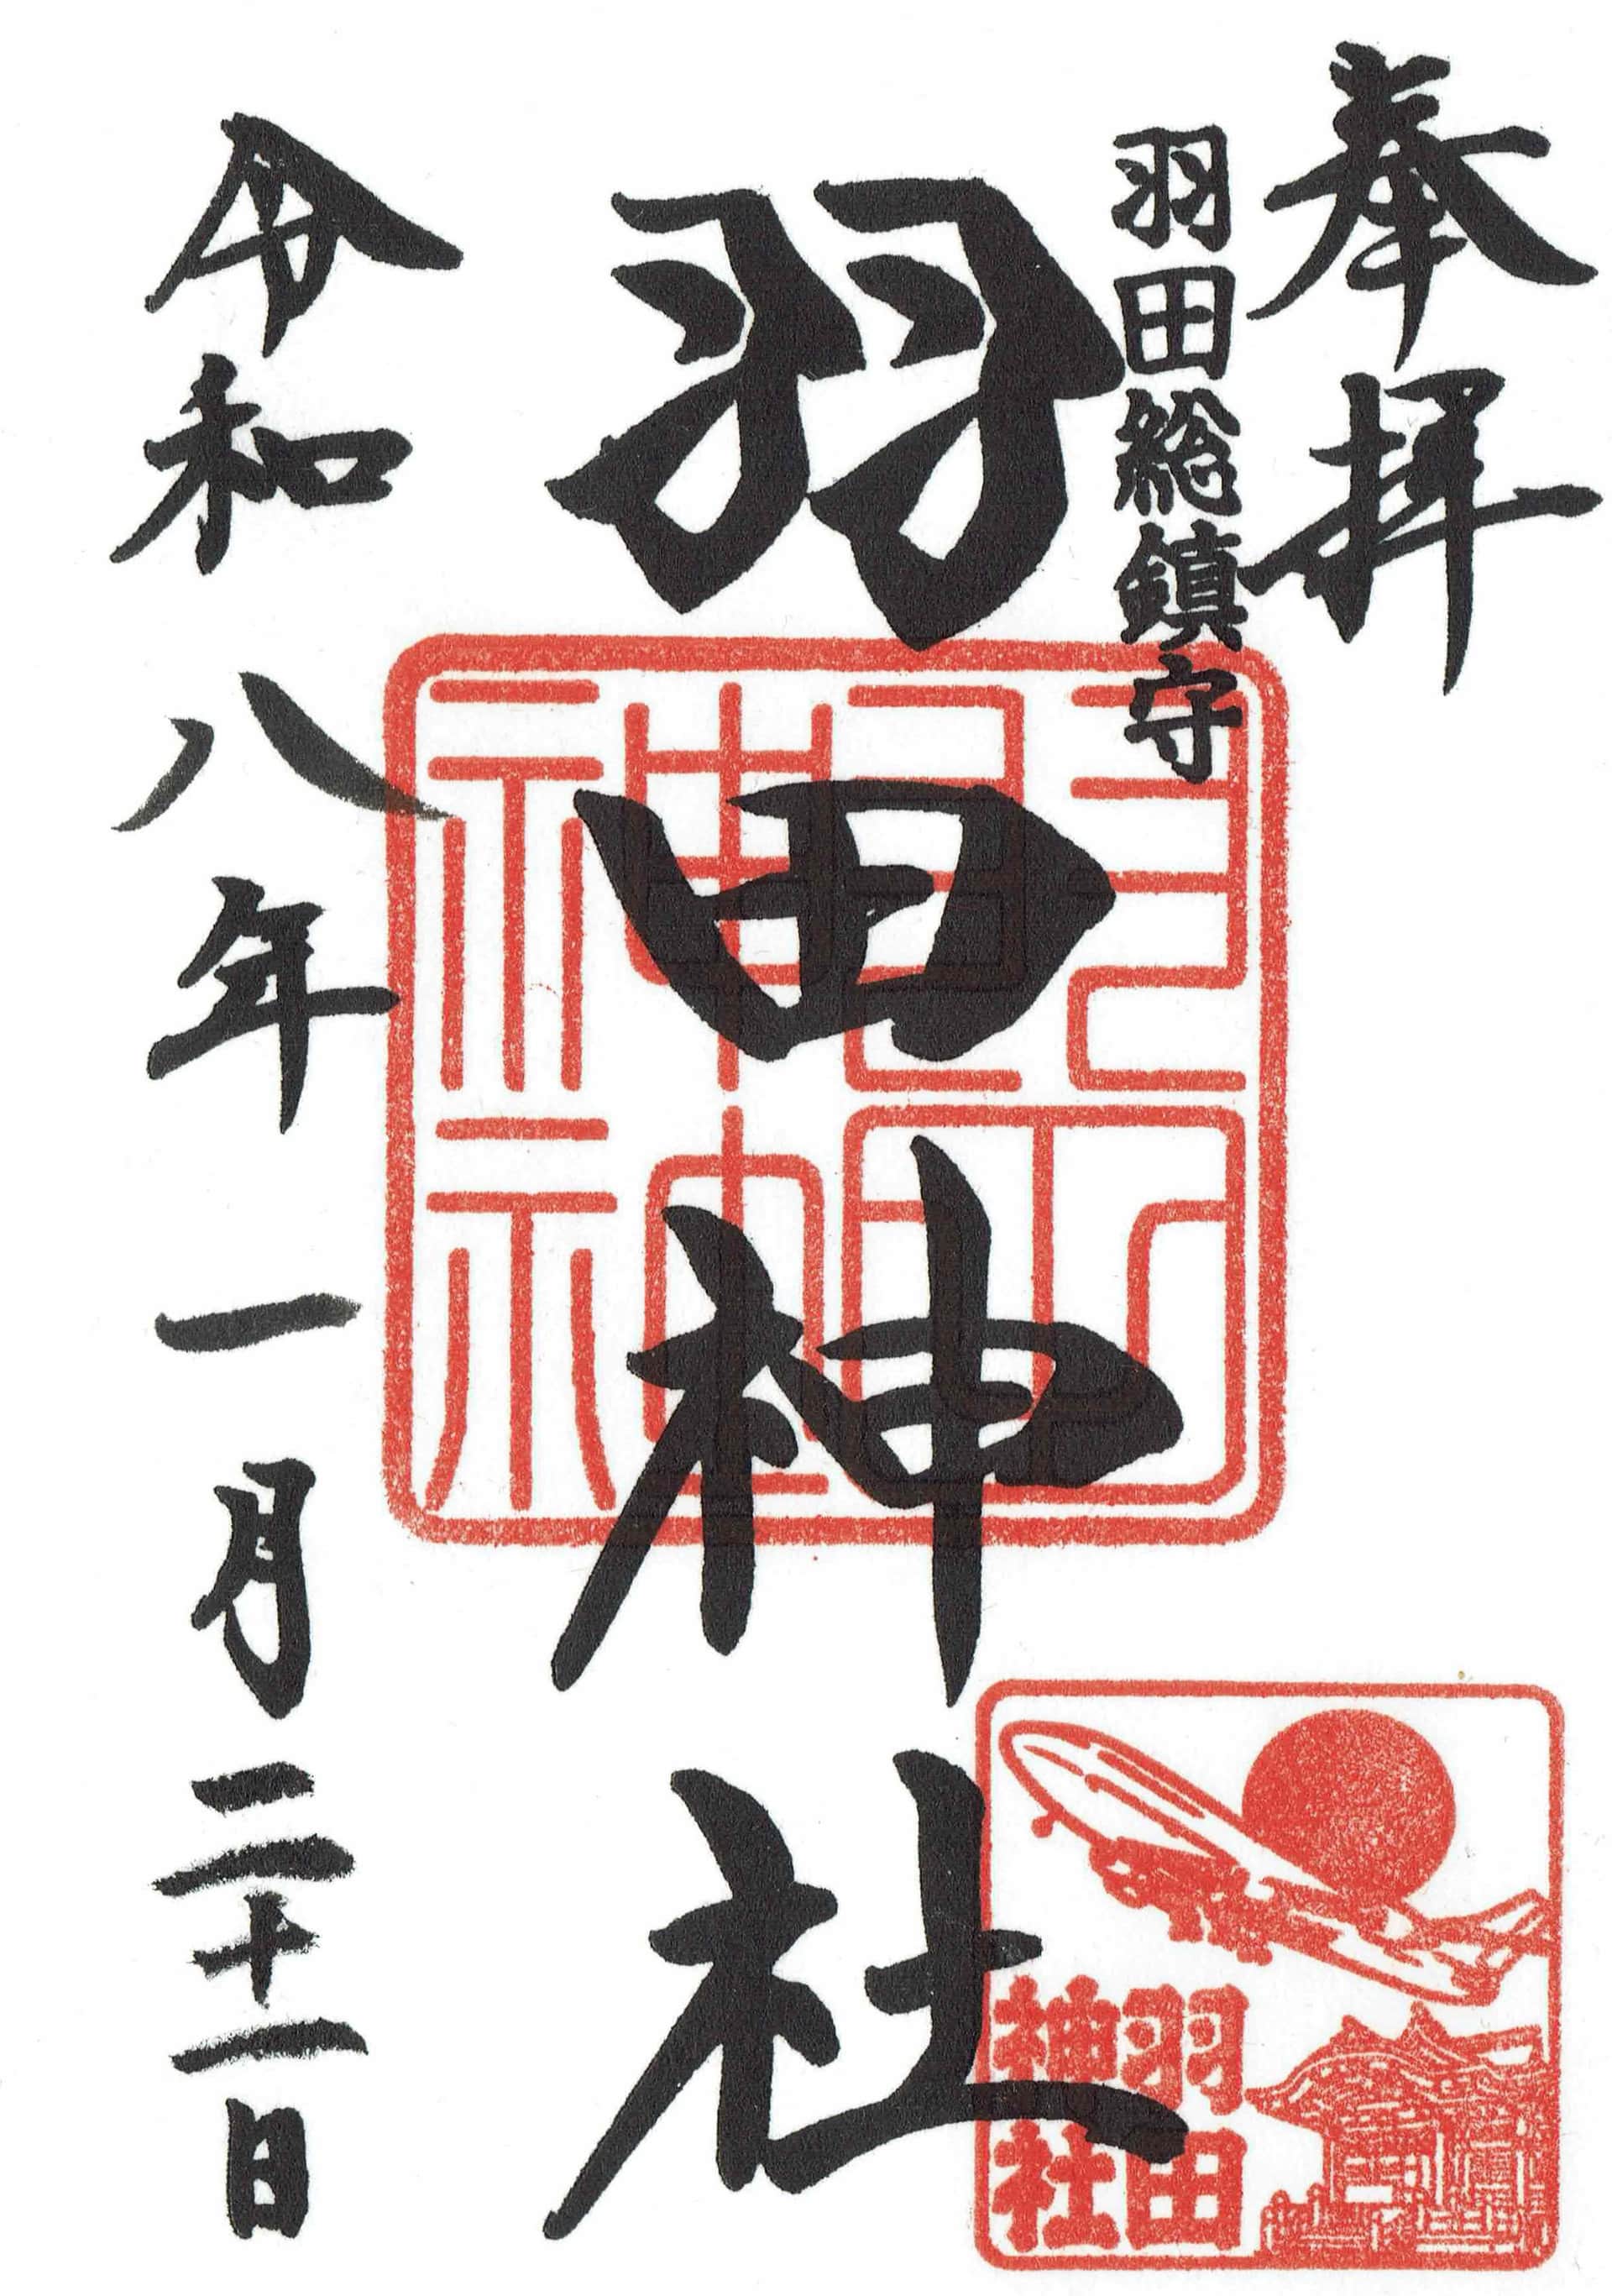 奉拝
羽田総鎮守
羽田神社
令和八年一月二十一日
羽田
神社